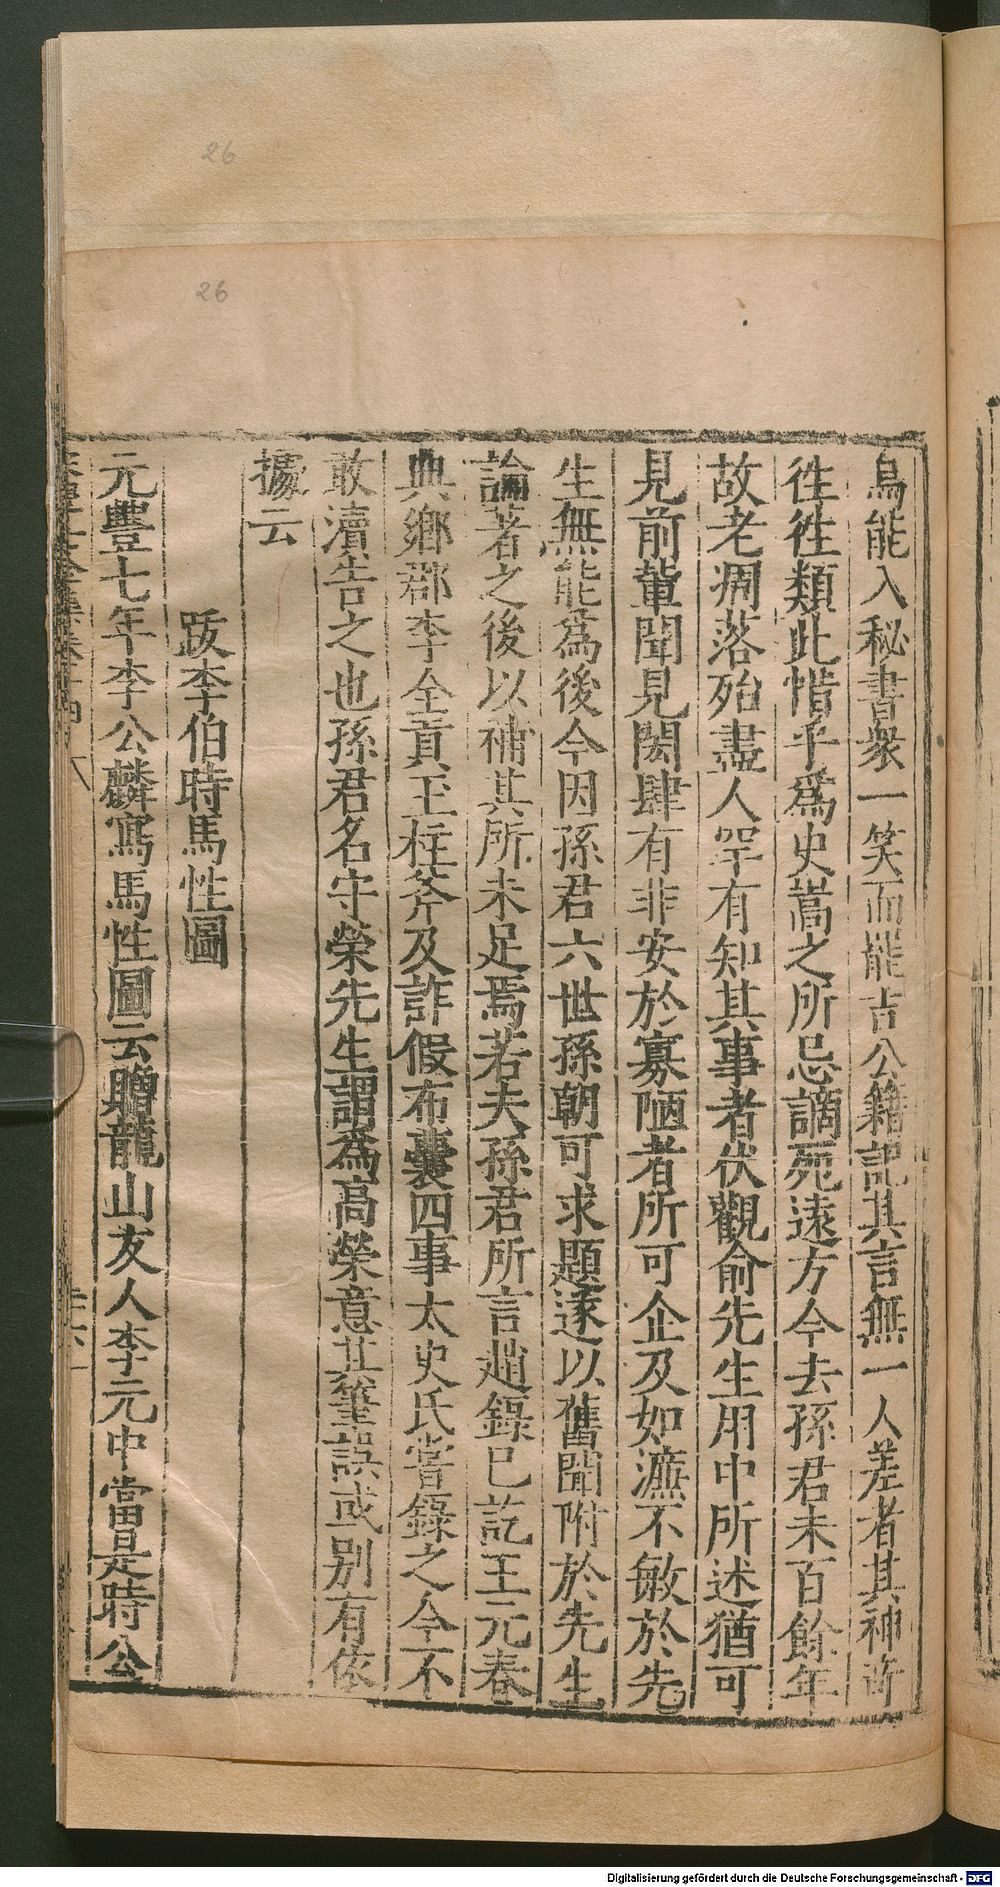 26
26
烏能入秘書衆一笑而罷吉公籍記其言無一人差者其神奇
徃徃類此惜乎爲史嵩之所忌謫死遠方今去孫君未百餘年
故老凋落殆盡人罕有知其事者伏觀俞先生用中所述猶可
見前輩聞見閎肆有非安於寡陋者所可企及如濂不敏於先
生無能爲後今因孫君六世孫朝可求題遂以舊聞附於先生
論著之後以補其所未足焉若夫孫君所言趙錄已訖王元春
典鄉郡李全貢玉柱斧及詐假布囊四事太史氏嘗錄之今不
敢瀆告之也孫君名守榮先生謂爲高榮意其筆誤或别有依
據云
跋李伯時馬性圖
元豐七年李公麟寫馬性圖云贈龍山友人李元中當是時公
Digitalisierung gefördert durch die Deutsche Forschungsgemeinschaft - DFG